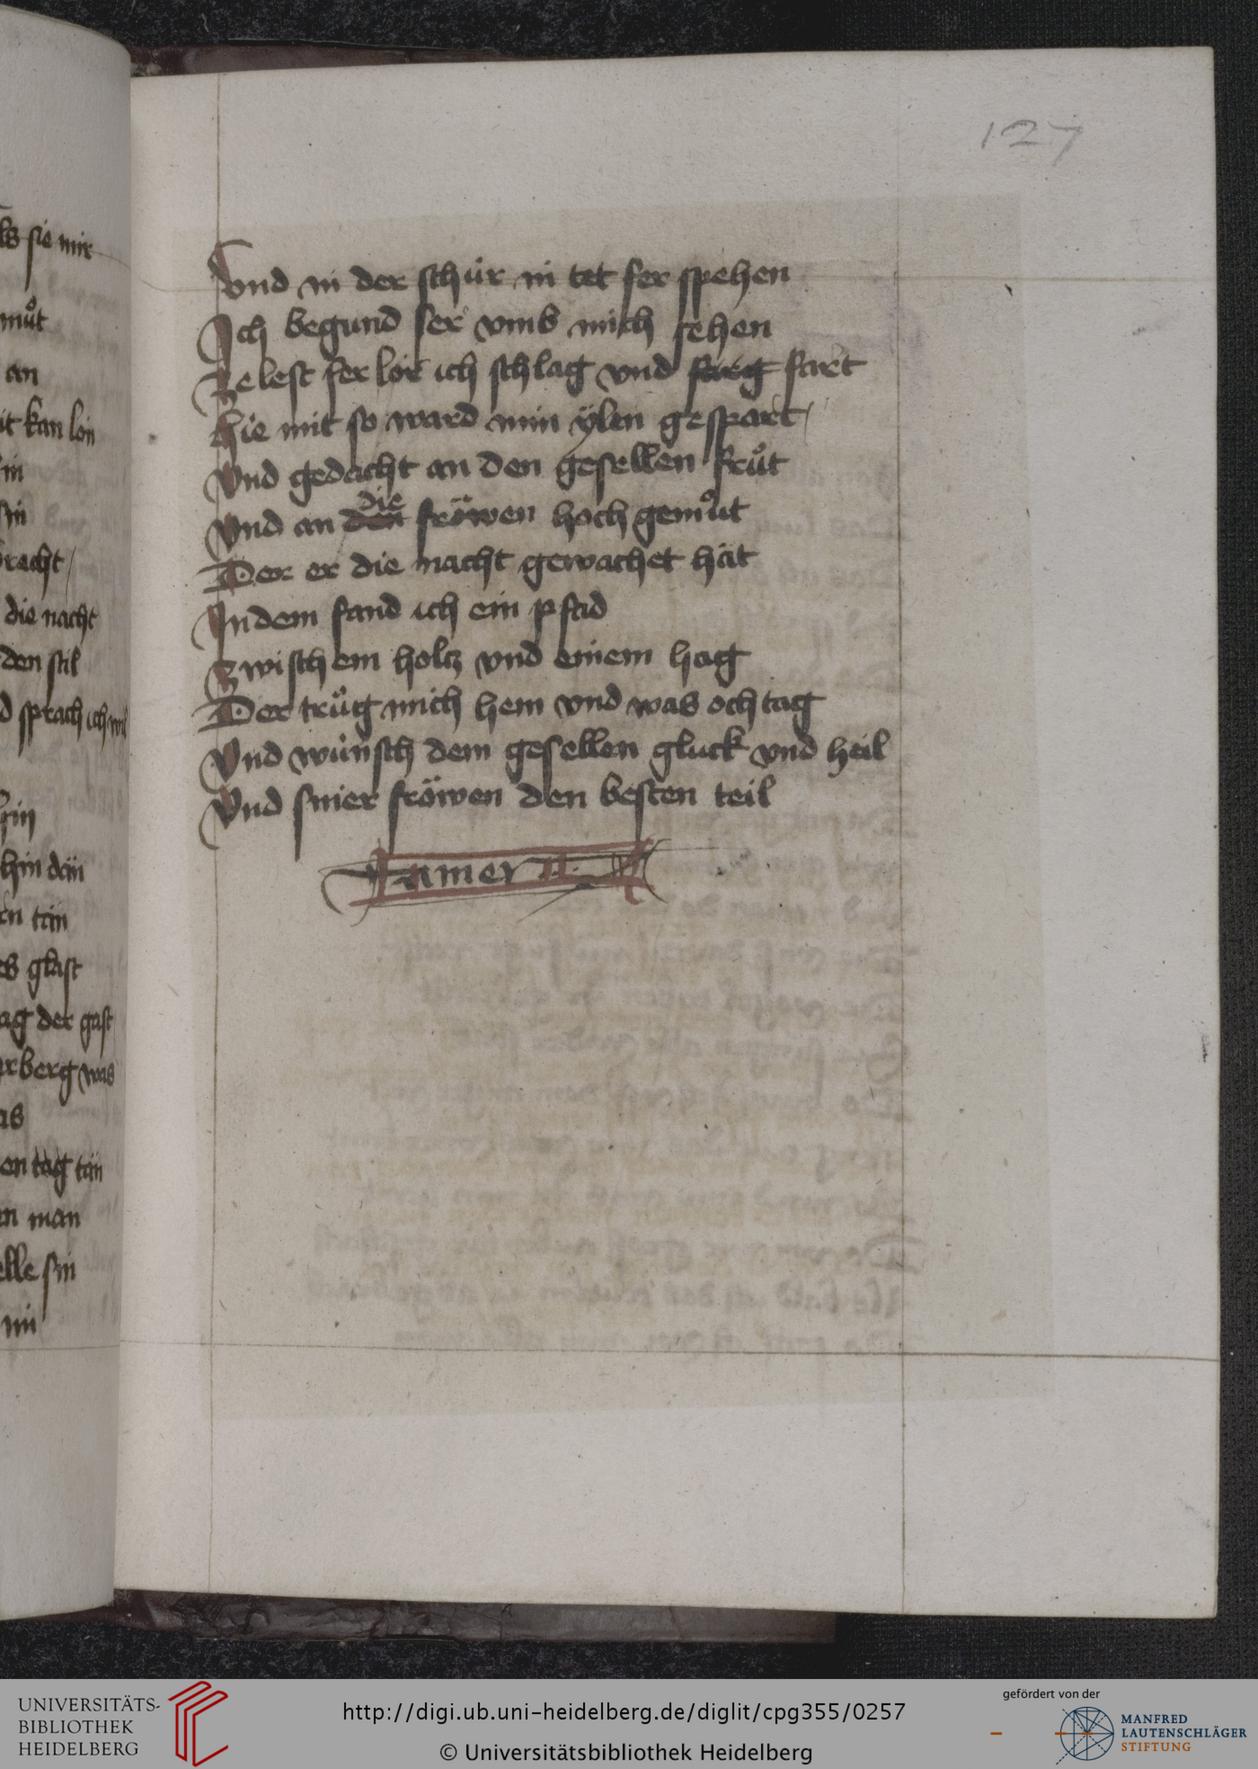 127
Vnd in der schůr in tet fer spehen
Ich begund ser vmb mich sehen
Ze lest fer lor ich schlag vnd farg fart
hie mit so ward min ÿlen gespart
Vnd gedacht an den gesellen frůt
Vnd an den die fröwen hoch gemůt
Der er die nacht gewachet hät
In dem fand ich ein pfad
Zwischem holtz vnd einem hag
Der trůg mich hem vnd was och tag
Vnd wünsch dem gesellen gluck vnd heil
Vnd siner fröwen den besten teil
Amer n
ls sie mir
můt
an
it kan lon
in
sin
bracht
die nacht
den stil
d sprach ich wil
hin
hin dän
en tän
es glast
ag der gast
erberg was
as
en tag tän
en man
elle sin
UNIVERSITÄTS-
BIBLIOTHEK
HEIDELBERG
http://digi.ub.uni-heidelberg.de/diglit/cpg355/0257
© Universitätsbibliothek Heidelberg
gefördert von der
MANFRED
LAUTENSCHLÄGER
STIFTUNG